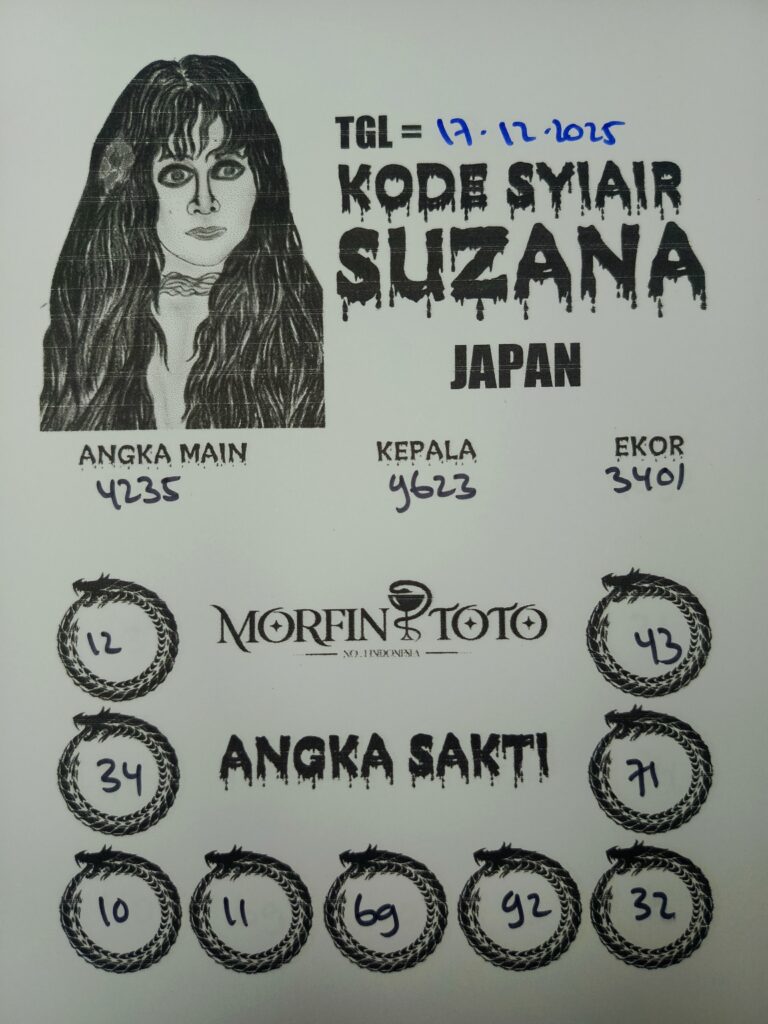 TGL = 17.12.2025
KODE SYIAIR
SUZANA
JAPAN
ANGKA MAIN KEPALA EKOR
4235 9623 3401
MORFIN TOTO
NO.1 INDONESIA
12 43
ANGKA SAKTI
34 71
10 11 69 92 32